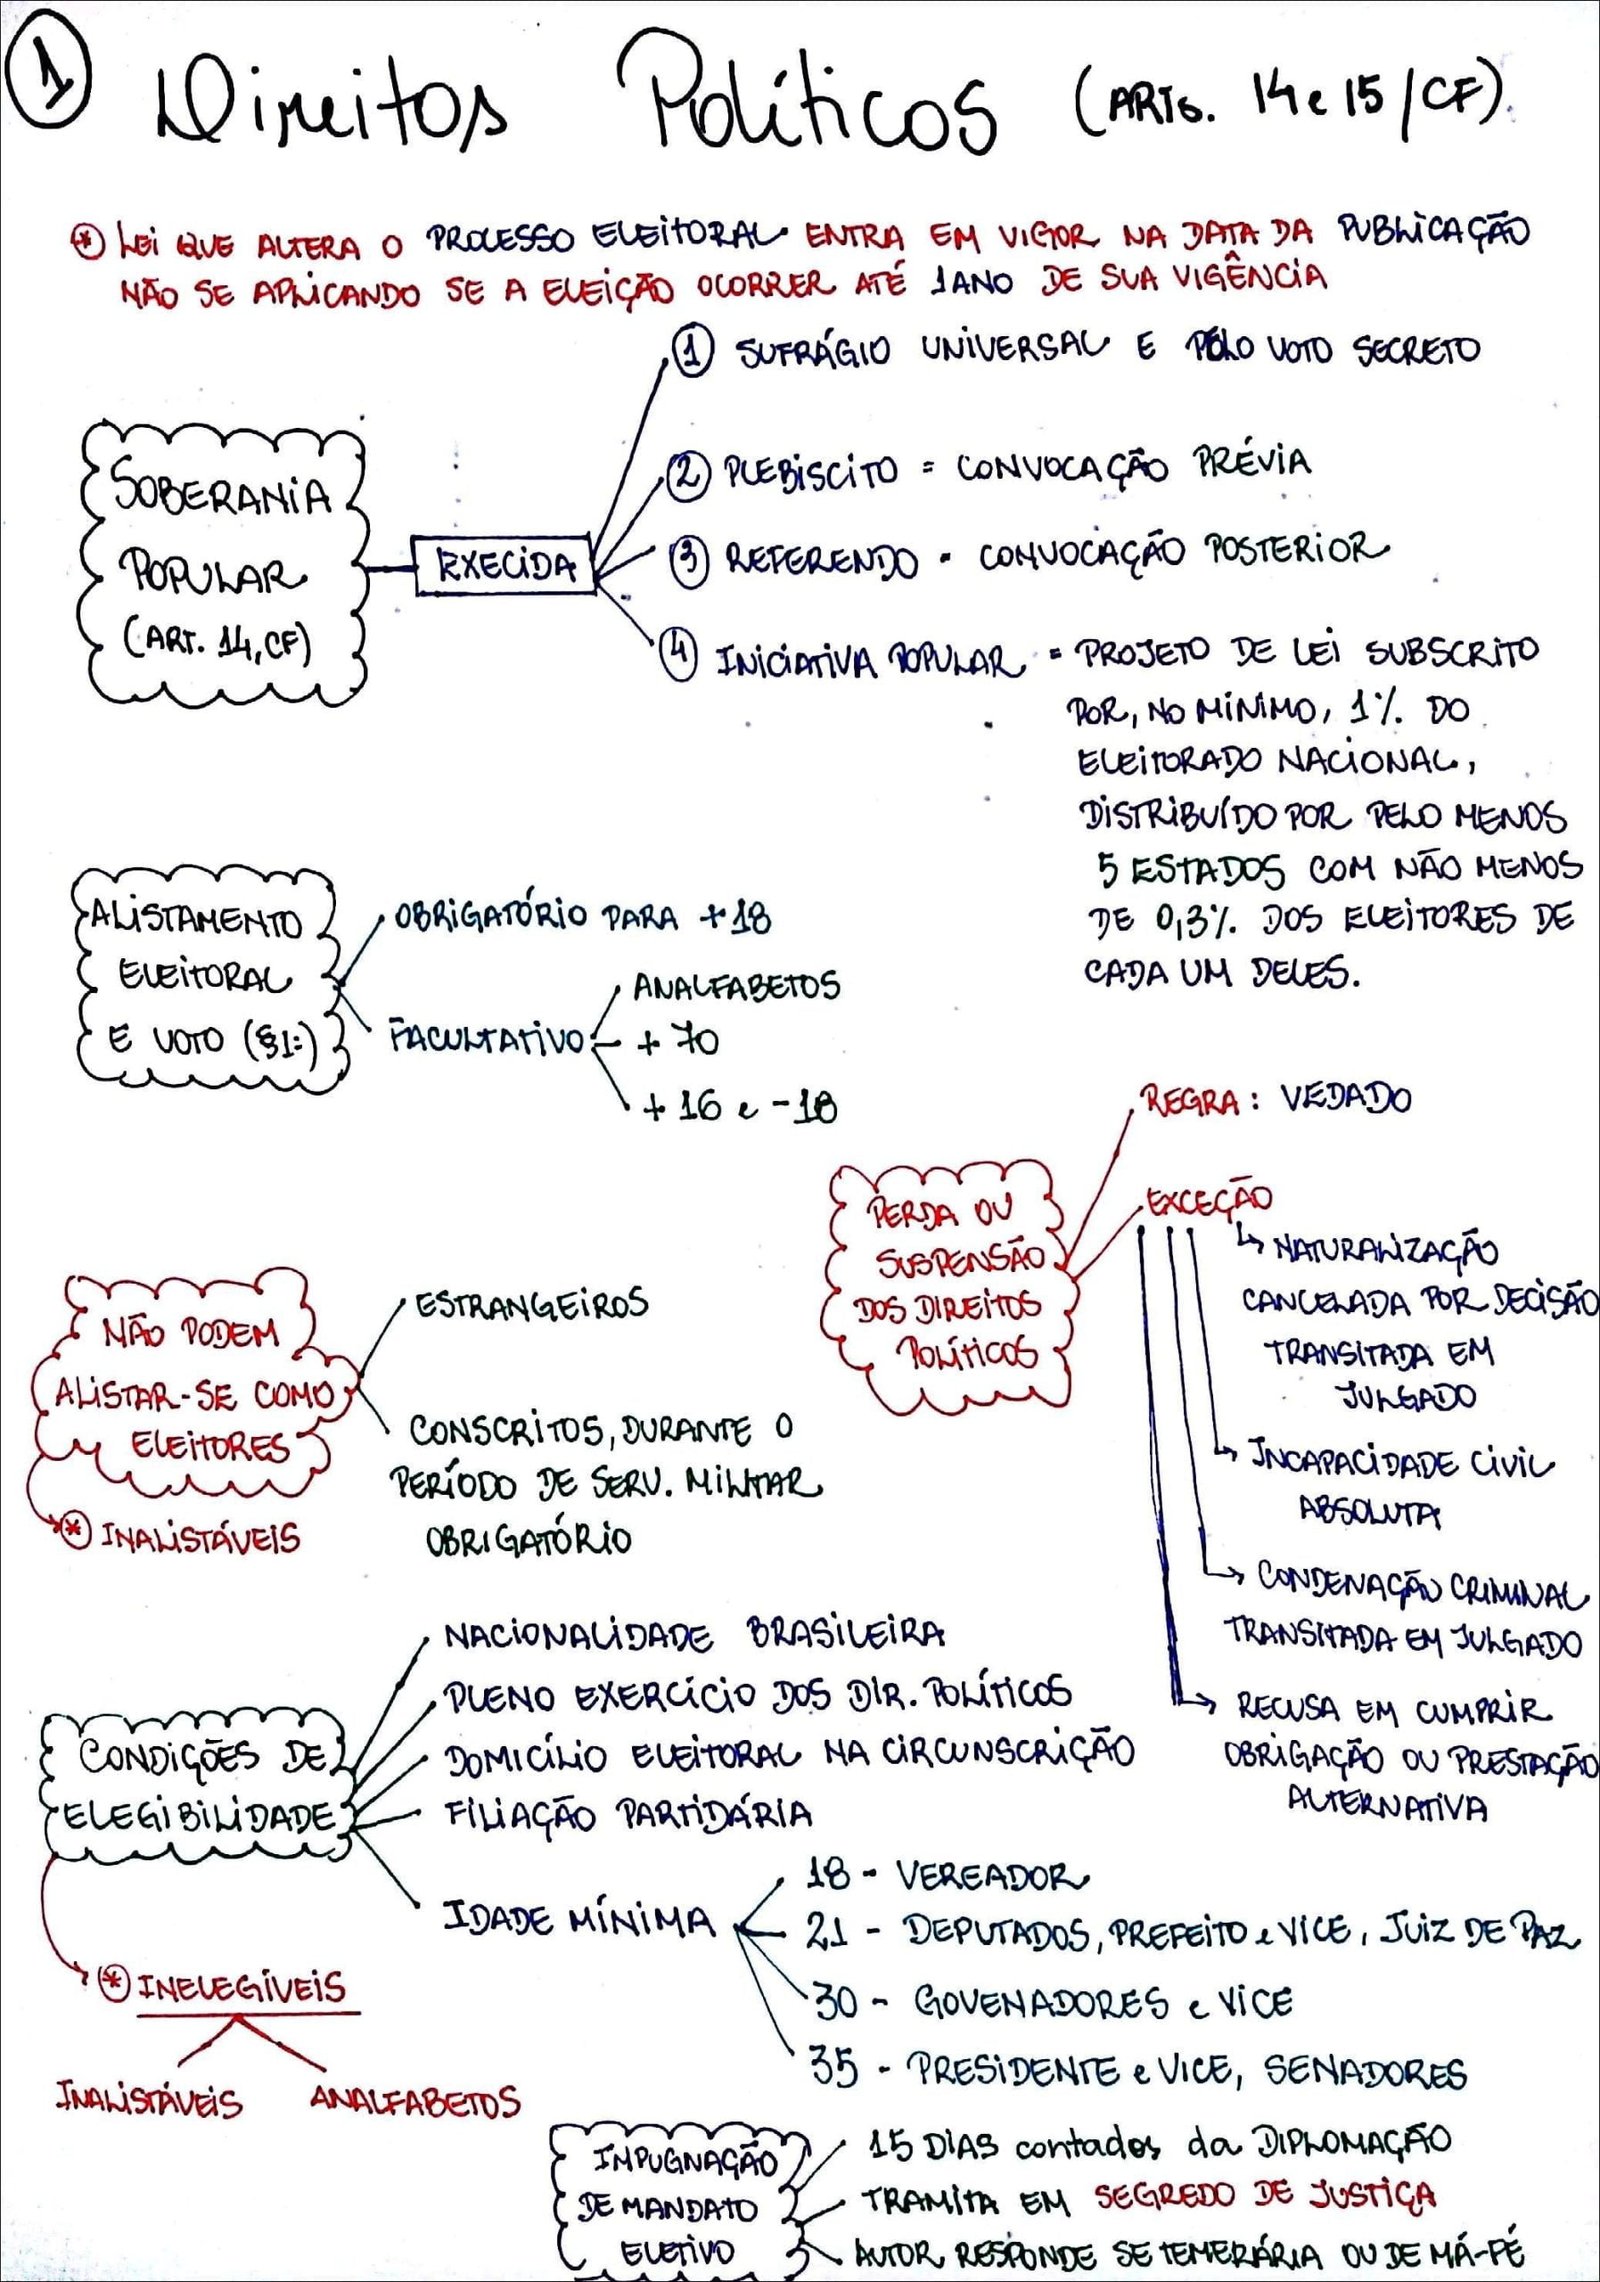 1 Direitos Políticos (ARTs. 14 e 15/CF).
* LEI QUE ALTERA O PROCESSO ELEITORAL ENTRA EM VIGOR NA DATA DA PUBLICAÇÃO
NÃO SE APLICANDO SE A ELEIÇÃO OCORRER ATÉ 1 ANO DE SUA VIGÊNCIA
SOBERANIA
POPULAR
(ART. 14, CF)
EXECIDA
1 SUFRÁGIO UNIVERSAL E PELO VOTO SECRETO
2 PLEBISCITO = CONVOCAÇÃO PRÉVIA
3 REFERENDO - CONVOCAÇÃO POSTERIOR
4 INICIATIVA POPULAR = PROJETO DE LEI SUBSCRITO
POR, NO MÍNIMO, 1% DO
ELEITORADO NACIONAL,
DISTRIBUÍDO POR PELO MENOS
5 ESTADOS COM NÃO MENOS
DE 0,3% DOS ELEITORES DE
CADA UM DELES.
ALISTAMENTO
ELEITORAL
E VOTO (§1º)
OBRIGATÓRIO PARA +18
FACULTATIVO
ANALFABETOS
+ 70
+ 16 e -18
PERDA OU
SUSPENSÃO
DOS DIREITOS
POLÍTICOS
REGRA: VEDADO
EXCEÇÃO
NATURALIZAÇÃO
CANCELADA POR DECISÃO
TRANSITADA EM
JULGADO
INCAPACIDADE CIVIL
ABSOLUTA
CONDENAÇÃO CRIMINAL
TRANSITADA EM JULGADO
RECUSA EM CUMPRIR
OBRIGAÇÃO OU PRESTAÇÃO
ALTERNATIVA
NÃO PODEM
ALISTAR-SE COMO
ELEITORES
* INALISTÁVEIS
ESTRANGEIROS
CONSCRITOS, DURANTE O
PERÍODO DE SERV. MILITAR
OBRIGATÓRIO
CONDIÇÕES DE
ELEGIBILIDADE
NACIONALIDADE BRASILEIRA
PLENO EXERCÍCIO DOS DIR. POLÍTICOS
DOMICÍLIO ELEITORAL NA CIRCUNSCRIÇÃO
FILIAÇÃO PARTIDÁRIA
IDADE MÍNIMA
18 - VEREADOR
21 - DEPUTADOS, PREFEITO e VICE, JUIZ DE PAZ
30 - GOVENADORES e VICE
35 - PRESIDENTE e VICE, SENADORES
* INELEGÍVEIS
INALISTÁVEIS
ANALFABETOS
IMPUGNAÇÃO
DE MANDATO
ELETIVO
15 DIAS contados da DIPLOMAÇÃO
TRAMITA EM SEGREDO DE JUSTIÇA
AUTOR RESPONDE SE TEMERÁRIA OU DE MÁ-FÉ